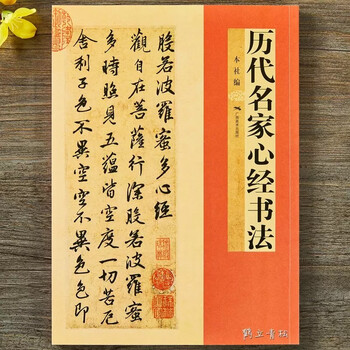 历代名家心经书法
本社编
般若波羅蜜多心經
觀自在菩薩行深般若波羅蜜
多時照見五蘊皆空度一切苦厄
舍利子色不異空空不異色色即
鶴立青松